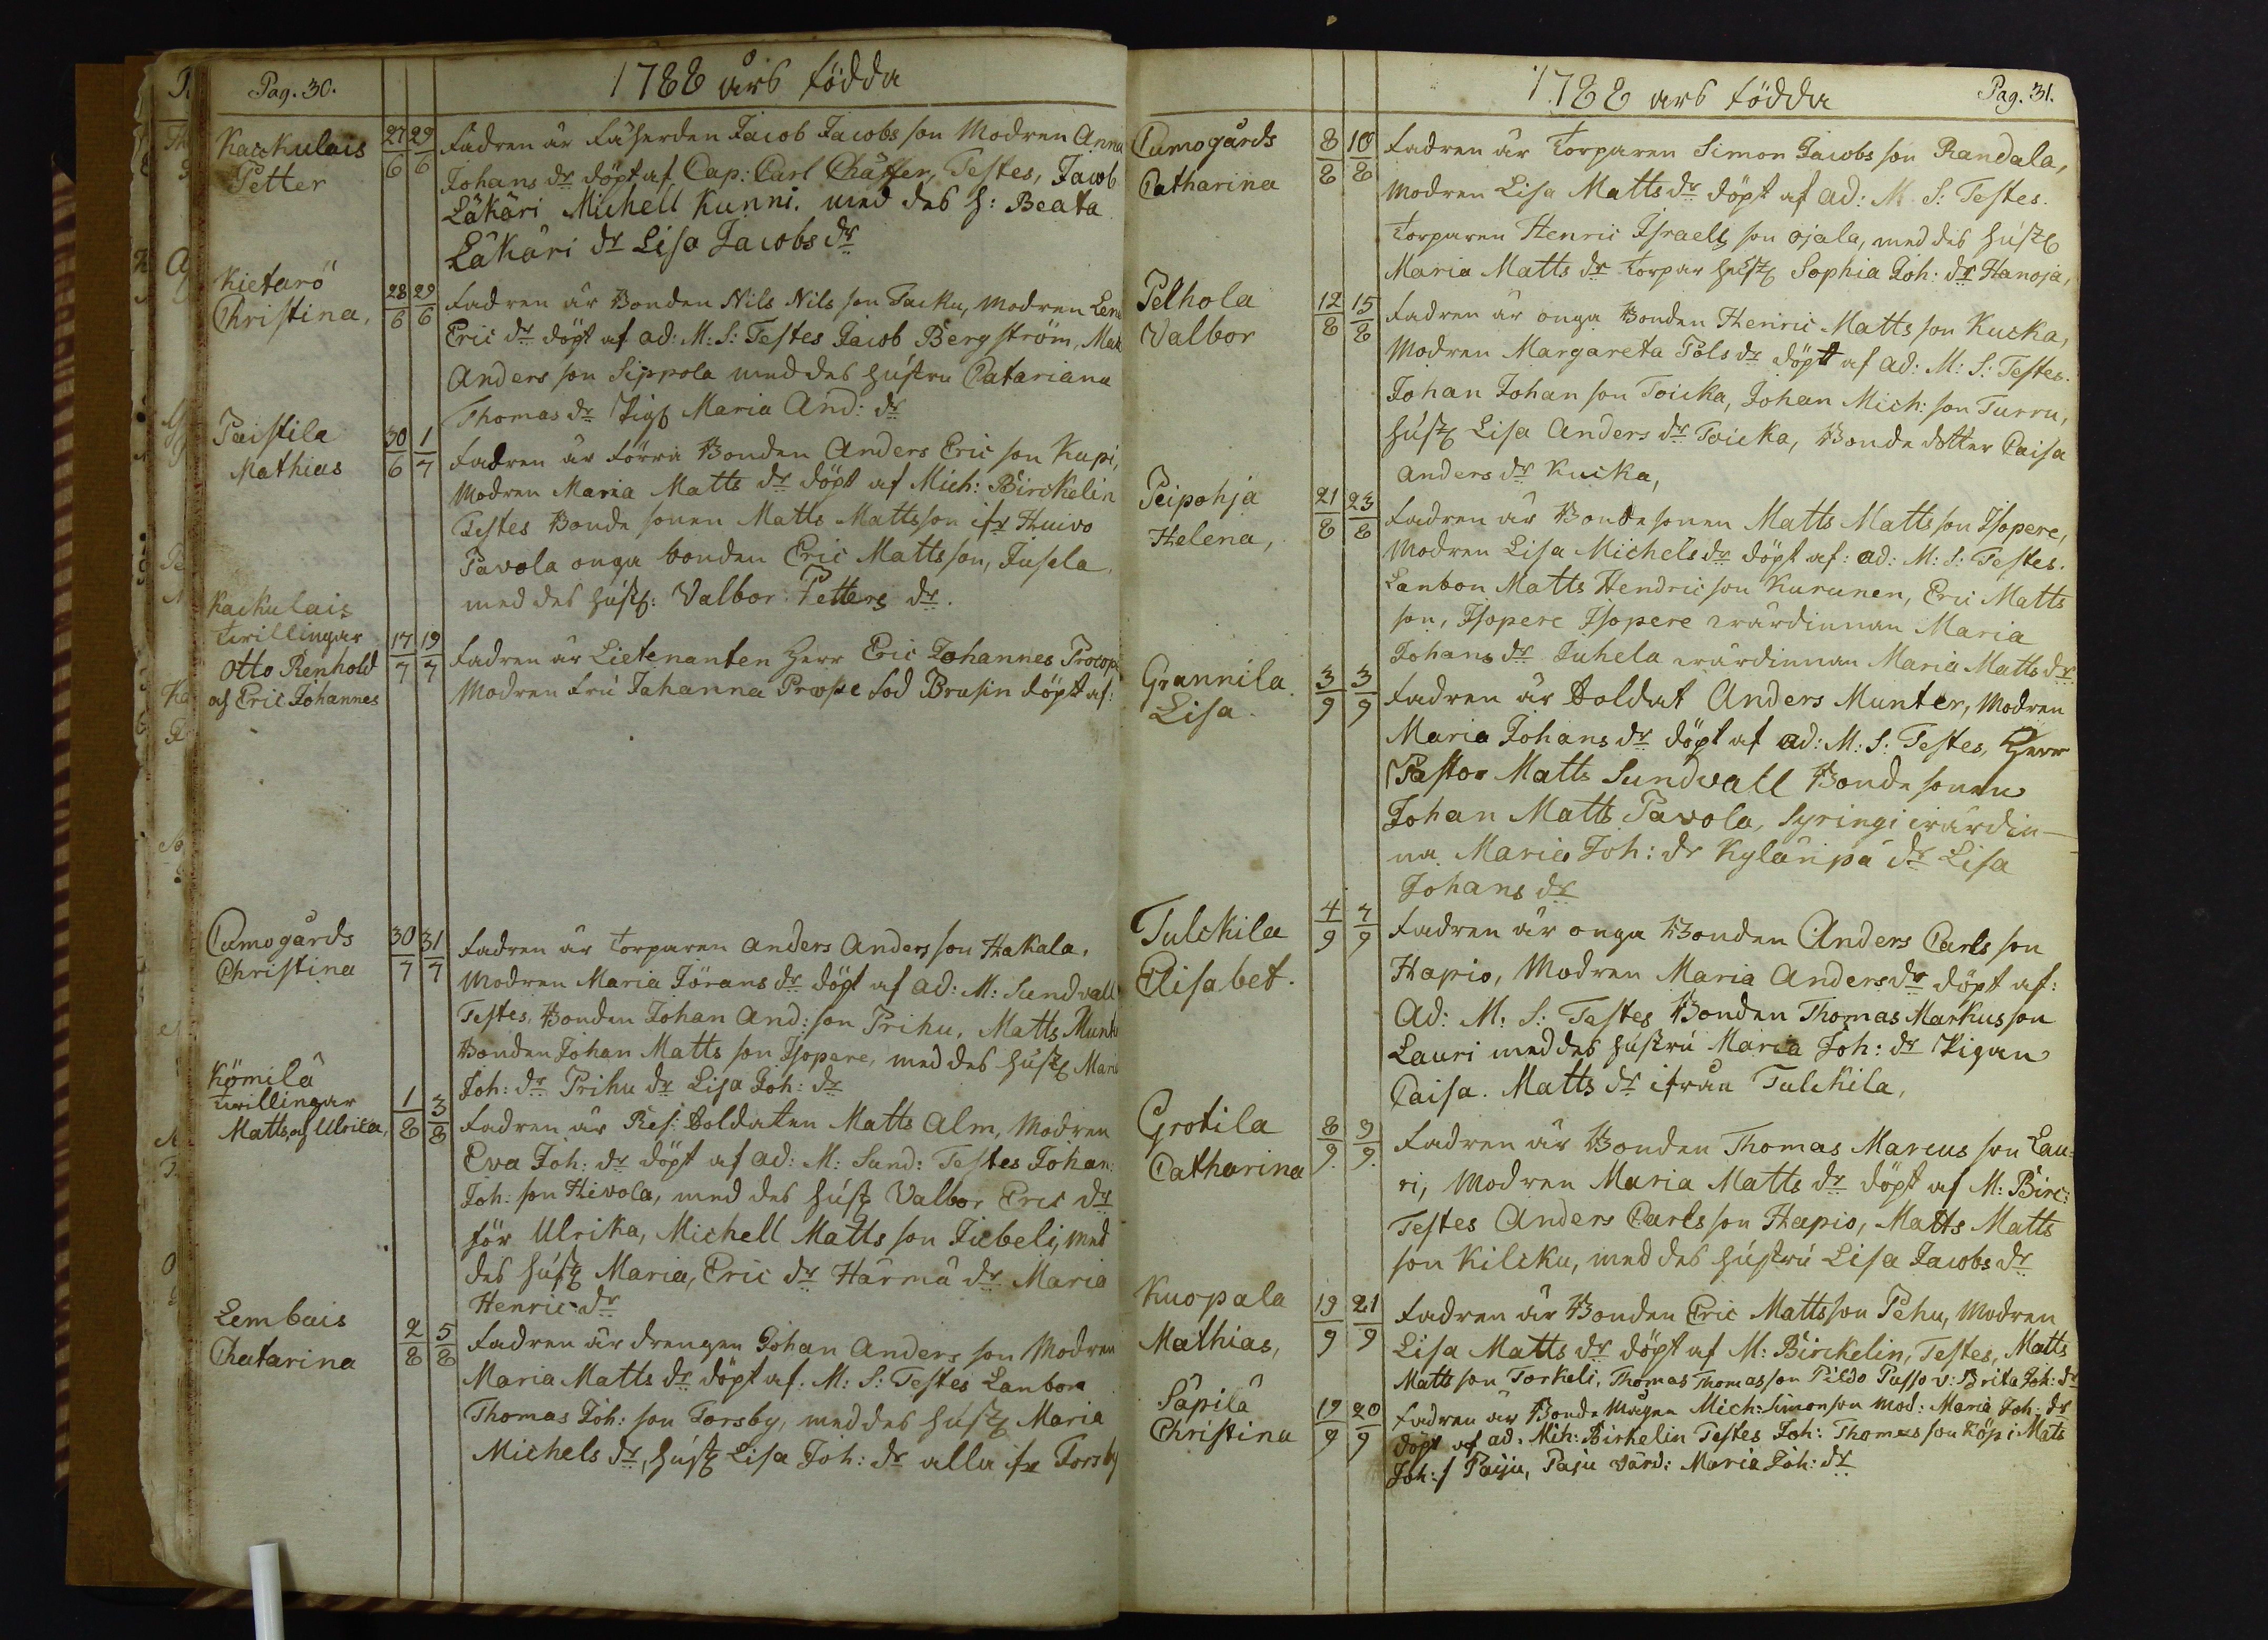 Pag. 30.
1788 års födda
Kackulais
Petter
27/6 29/6
Fadren är Fäherden Jacob Jacobs son Modren Anna
Johans dr döpt af Cap: Carl Chäffer, Testes, Jacob
Läkäri Michell Kunni. med des h: Beata
Läkäri dr Lisa Jacobs dr
Kietarö
Christina,
28/6 29/6
Fadren är Bonden Nils Nils son Tacku, Modren Lena
Eric dr döpt af ad: M: S: Testes Jacob Bergström, Mat
Anders son Sippola med des hústru Catariana
Thomas dr Pig Maria And: dr
Paistila
Mathias
30/6 1/7
Fadren är förra Bonden Anders Eric son Kapi,
Modren Maria Matts dr döpt af Mich: Birckelin
Testes Bonde sonen Matts Mattsson ifr Huivo
Pavola onga bonden Eric Mattsson, Jusela
med des húst: Valbor Petters dr.
Kackulais
twillingar
Otto Renhold
af Eric Johannes
17/7 19/7
Fadren är Lietenanten Herr Eric Johannes Procop
Modren Frú Jahanna Procope Fod Brusin döpt af:
Cumogårds
Christina
30/7 31/7
Fadren är Torparen Anders Anders son Hakala.
Modren Maria Jörans dr döpt af ad: M: Sundvall
Testes, Bonden Johan And: son Prihu, Matts Munk
Bonden Johan Matts son Isopere, med des húst Maria
Joh: dr Prihu dr Lisa Joh: dr
Kömilä
twillingar
Matts, af Ulrica,
1/8 3/8
Fadren är Res: Soldaten Matts Alm, Modren
Eva Joh: dr döpt af ad: M: Sund: Testes Johan:
Joh: son Hivola, med des húst Valbor Eric dr
för Ulrika, Michell Matts son Jicbeli, med
des húst Maria, Eric dr Härmä dr Maria
Henric dr
Lembais
Chatarina
2/8 5/8
Fadren är drengen Johan Anders son Modren
Maria Matts dr döpt af. M: S: Testes Lanbon
Thomas Joh: son Torsby, med des húst Maria
Michels dr, húst Lisa Joh: dr alla ifr Torsby
1788 ars födda
Pag. 31.
Cumogårds
Catharina
8/8 10/8
Fadren är Torparen Simon Jacobs son Randala,
Modren Lisa Matts dr döpt af ad: M. S: Testes.
Torparen Henric Israels son Ojala, med des húst
Maria Matts dr Torpar húst Sophia Joh: dr Hanoja,
Pelhola
Valbor
12/8 15/8
Fadren är onga Bonden Henric Matts son Kucka,
Modren Margareta Pols dr döpt af ad: M: S: Testes.
Johan Johan son Toicka, Johan Mich: son Turru,
húst Lisa Anders dr Toicka, Bonde dotter Caisa
Anders dr Kucka,
Peipohja
Helena,
21/8 23/8
Fadren är Bonde sonen Matts Matts son Isopere,
Modren Lisa Michels dr döpt af: ad: M: S: Testes.
Lanbon Matts Hendric son Kurunen, Eric Matts
son, Isopere Isopere wärdinnan Maria
Johans dr Juhela wärdinnan Maria Matts dr
Grannila
Lisa.
3/9 3/9
Fadren är Soldat Anders Munter, Modren
Maria Johans dr döpt af ad: M: S: Testes, Herr
Pastor Matts Sundvall Bonde sonen
Johan Matts Pavola, Syringi wärdin-
na Maria Joh: dr Kylänpä dr Lisa
Johans dr
Tulckila
Elisabet.
4/9 7/9
Fadren är onga Bonden Anders Carls son
Hapio, Modren Maria Anders dr döpt af:
Ad: M: S: Testes Bonden Thomas Markusson
Lauri med des hústrú Maria Joh: dr Pigan
Caisa. Matts dr ifrån Tulckila,
Grotila
Catharina
8/9. 9/9.
Fadren är Bonden Thomas Marcus son Lau=
ri, Modren Maria Matts dr döpt af M: Birc:
Testes Anders Carls son Hapio, Matts Matts
son Kilcku, med des hústrú Lisa Jacobs dr
Kuopala
Mathias,
19/9 21/9
Fadren är Bonden Eric Mattsson Pehu, Modren
Lisa Matts dr döpt af M: Birckelin, Testes, Matts
Matts son Torkeli, Thomas Thomasson Pildo Passo v: Brita Joh: dr
Säpilä
Christina
19/9 20/9
Fadren är Bonde Mågen Mich: Simonson Mod: Maria Joh: dr
döpt af ad. Mih: Birkelin Testes Joh: Thomasson Köpi Mats
Joh: s Paiju, Paju värd: Maria Joh: dr